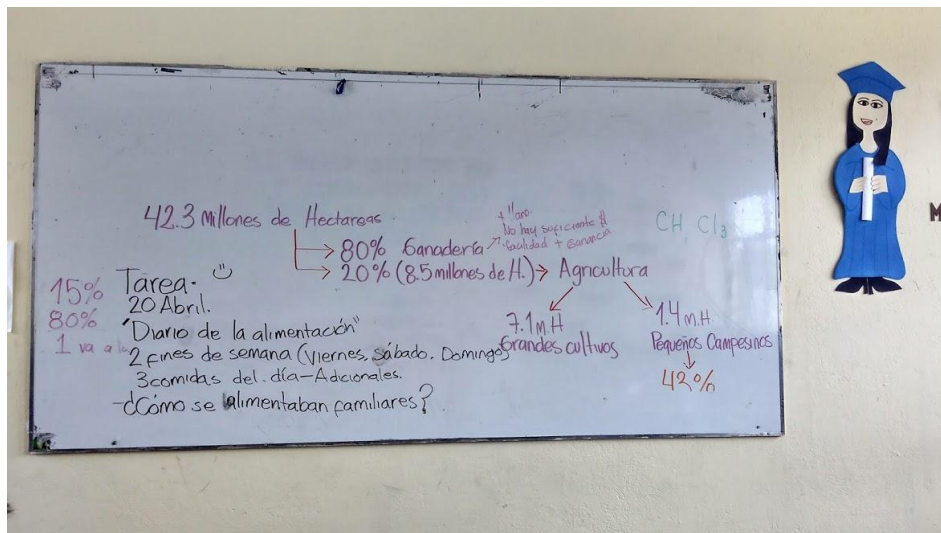 42.3 Millones de Hectareas.
80% Ganadería
No hay suficiente
facilidad + Ganancia
20% (8.5 millones de H.) → Agricultura
7.1 m.H
Grandes cultivos
1.4 m.H
Pequeños Campesinos
42%
CH, Cl3
15%
80%
1 va a la
Tarea.
20 Abril.
"Diario de la alimentación"
2 fines de semana (Viernes, sábado. Domingo)
3 comidas del. día - Adicionales.
- ¿Cómo se alimentaban familiares?
M